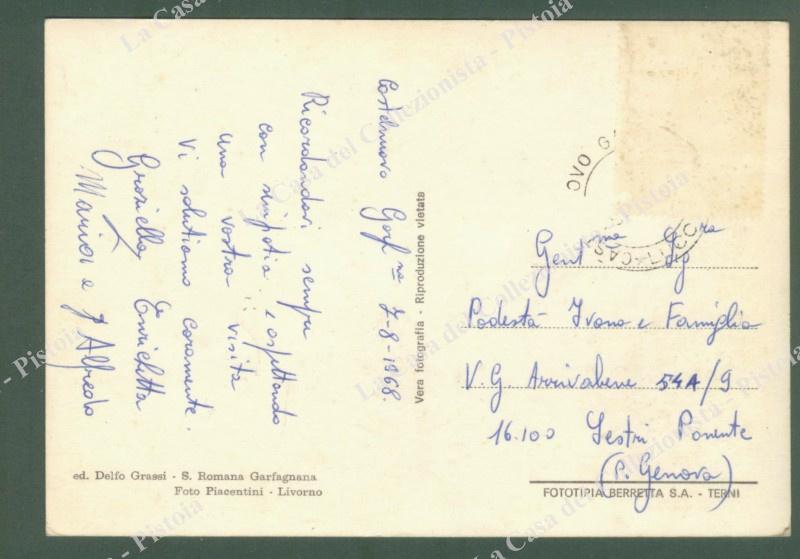 Castelnuovo Garf.na 7-8-1968.
Ricordandovi sempre
con simpatia e aspettando
una vostra visita
Vi salutiamo caramente.
Graziella Enrichetta
Maria e Alfredo
Vera fotografia - Riproduzione vietata
ed. Delfo Grassi - S. Romana Garfagnana
Foto Piacentini - Livorno
OVO GA
LUCCA
Gent ma Sig ra
Podestà Ivana e Famiglia
V.G. Arrivabene 54A/9
16.100 Sestri Ponente
(P. Genova)
FOTOTIPIA BERRETTA S.A. - TERNI
La Casa del Collezionista - Pistoia